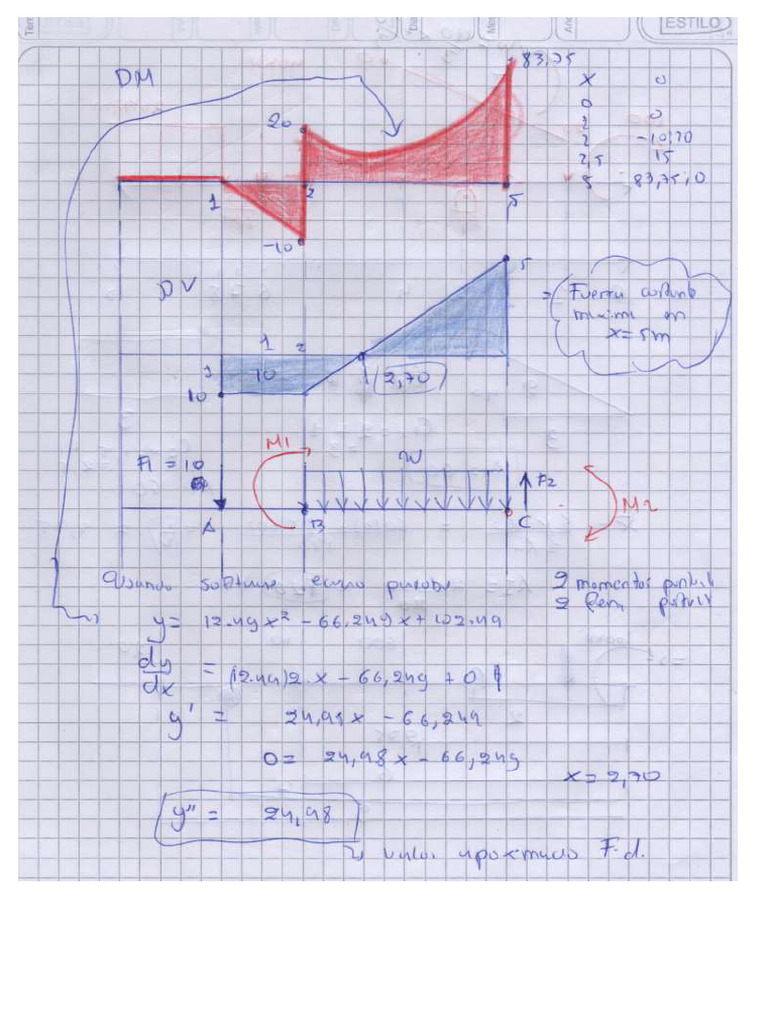 ESTILO
DM
83,75
x 0
0
20
0
2 -10;20
2,5 15
5 83,75;0
1
2
5
-10
DV
5
= Fuerza cortante
maxima en
x=5m
1 2
10
10
2,70
M1
W
F1 = 10
F2
M2
A
B
C
Usando software
2 momentos
2
y = 12.49x² - 66,249x + 102.49
dy/dx = (12.49)2.x - 66,249 + 0
y' = 24,98x - 66,249
0 = 24,98x - 66,249
x = 2,70
y'' = 24,98
valor aproximado F.d.